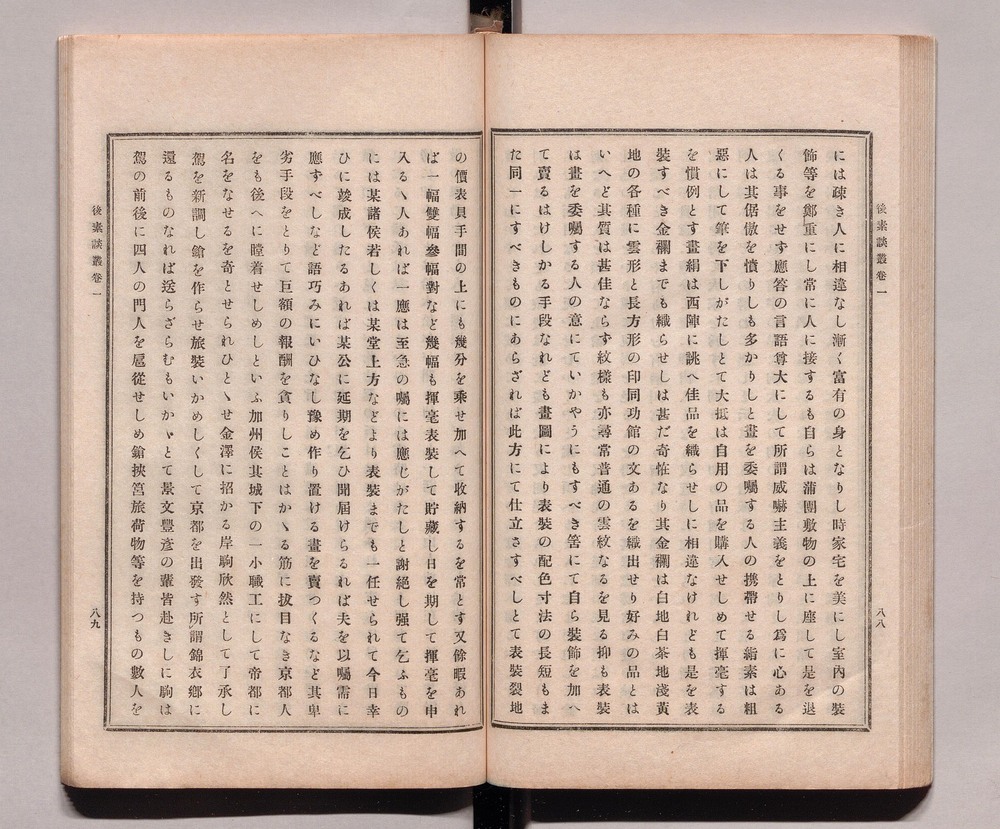 後素談叢卷一
八八
には疎き人に相違なし漸く富有の身となりし時家宅を美にし室內の裝
飾等を鄭重にし常に人に接するも自らは蒲團敷物の上に座して是を退
くる事をせず應答の言語尊大にして所謂威嚇主義をとりし爲に心ある
人は其倨傲を憤りしも多かりしと畫を委囑する人の携帶せる絹素は粗
惡にして筆を下しがたしとて大抵は自用の品を購入せしめて揮毫する
を慣例とす畫絹は西陣に誂へ佳品を織らせしに相違なけれども是を表
裝すべき金襴までも織らせしは甚だ奇怪なり其金襴は白地白茶地淺黃
地の各種に雲形と長方形の印同功館の文あるを織出せり好みの品とは
いへど其質は甚佳ならず紋樣も亦尋常普通の雲紋なるを見る抑も表裝
は畫を委囑する人の意にていかやうにもすべき筈にて自ら裝飾を加へ
て賣るはけしかる手段なれども畫圖により表裝の配色寸法の長短もま
た同一にすべきものにあらざれば此方にて仕立さすべしとて表裝裂地
の價表具手間の上にも幾分を乘せ加へて收納するを常とす又餘暇あれ
ば一幅雙幅參幅對など幾幅も揮毫表裝して貯藏し日を期して揮毫を申
入るゝ人あれば一應は至急の囑には應じがたしと謝絕し强て乞ふもの
には某諸侯若しくは某堂上方などより表裝までも一任せられて今日幸
ひに竣成したるあれば某公に延期を乞ひ聞屆けらるれば夫を以囑需に
應ずべしなど語巧みにいひなし豫め作り置ける畫を賣つくるなど其卑
劣手段をとりて巨額の報酬を貪りしことはかゝる筋に拔目なき京都人
をも後へに瞠着せしめしといふ加州侯其城下の一小職工にして帝都に
名をなせるを奇とせられひとゝせ金澤に招かる岸駒欣然として了承し
駕を新調し鎗を作らせ旅裝いかめしくして京都を出發す所謂錦衣鄕に
還るものなれば送らざらむもいかゞとて景文豐彥の輩皆赴きしに駒は
駕の前後に四人の門人を扈從せしめ鎗挾筥旅荷物等を持つもの數人を
後素談叢卷一
八九